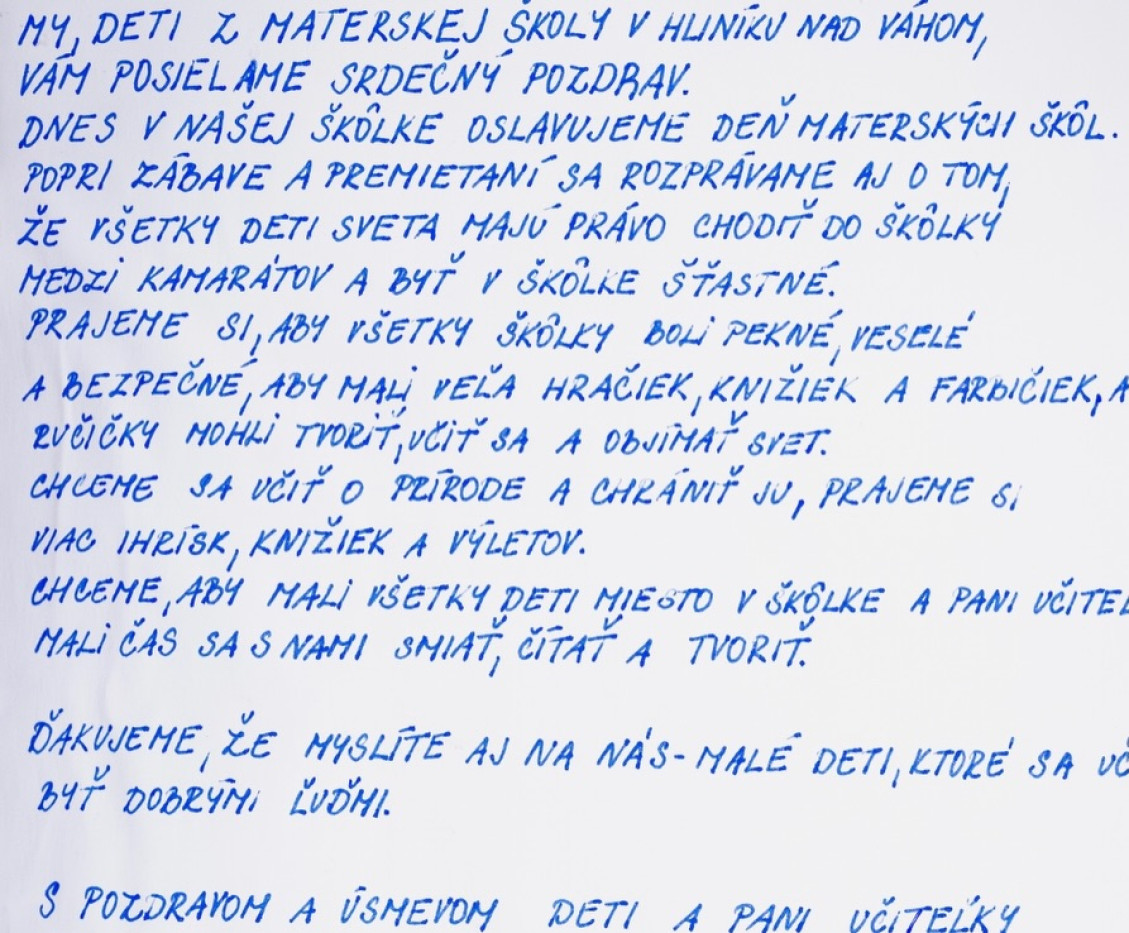 MY, DETI Z MATERSKEJ ŠKOLY V HLINÍKU NAD VÁHOM,
VÁM POSIELAME SRDEČNÝ POZDRAV.
DNES V NAŠEJ ŠKÔLKE OSLAVUJEME DEŇ MATERSKÝCH ŠKÔL.
POPRI ZÁBAVE A PREMIETANÍ SA ROZPRÁVAME AJ O TOM,
ŽE VŠETKY DETI SVETA MAJÚ PRÁVO CHODIŤ DO ŠKÔLKY
MEDZI KAMARÁTOV A BYŤ V ŠKÔLKE ŠŤASTNÉ.
PRAJEME SI, ABY VŠETKY ŠKÔLKY BOLI PEKNÉ, VESELÉ
A BEZPEČNÉ, ABY MALI VEĽA HRAČIEK, KNIŽIEK A FARBIČIEK, A
RUČIČKY MOHLI TVORIŤ, UČIŤ SA A OBJÍMAŤ SVET.
CHCEME SA UČIŤ O PRÍRODE A CHRÁNIŤ JU, PRAJEME SI
VIAC IHRÍSK, KNIŽIEK A VÝLETOV.
CHCEME, ABY MALI VŠETKY DETI MIESTO V ŠKÔLKE A PANI UČITEL
MALI ČAS SA S NAMI SMIAŤ, ČÍTAŤ A TVORIŤ.
ĎAKUJEME, ŽE MYSLÍTE AJ NA NÁS - MALÉ DETI, KTORÉ SA UČ
BYŤ DOBRÝMI ĽUĎMI.
S POZDRAVOM A ÚSMEVOM DETI A PANI UČITEĽKY